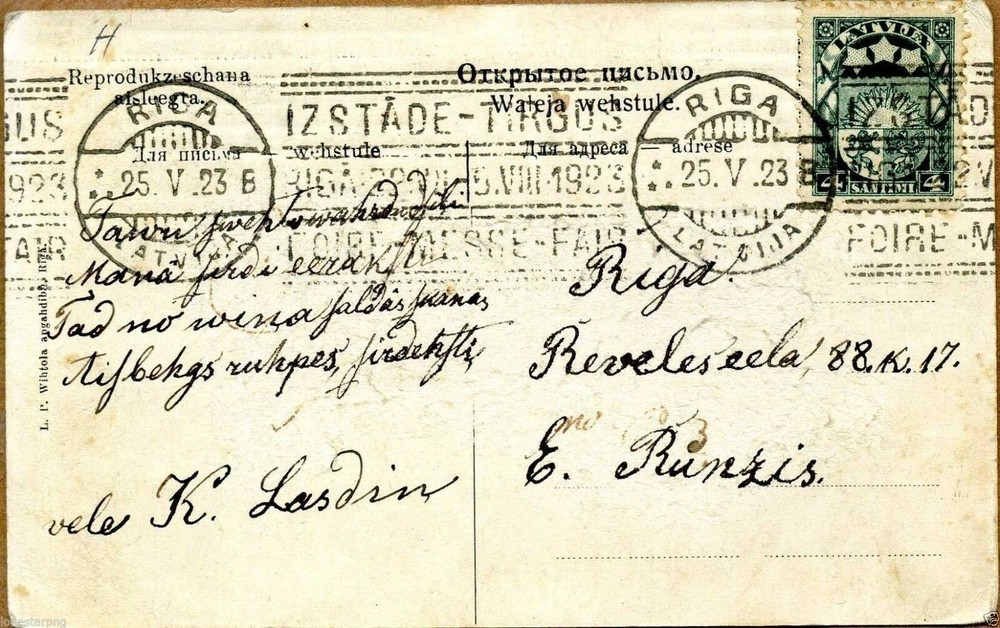 H
Reprodukzeschana
aisleegta.
Открытое письмо.
Waleja wehstule.
LATVIJA
4 SANTIMI 4
RIGA
25. V. 23 B
LATVIJA
IZSTĀDE-TIRGUS
RIGA VIII 1923
FOIRE-MESSE-FAIR
RIGA
25. V. 23 B
LATVIJA
GUS
1923
FOIRE-M
Для письма — wehstule
Для адреса — adrese
Tawu
Mana sirdi eeraksti
Tad no wiņa saldās skaņas
Aisbehgs ruhpes, sirdehsti
vele K. Lasdin
Riga.
Reveles eela, 88. K. 17.
E. Runzis.
L. P. Wihtola apgahdibā, Rigā
jollestarpng